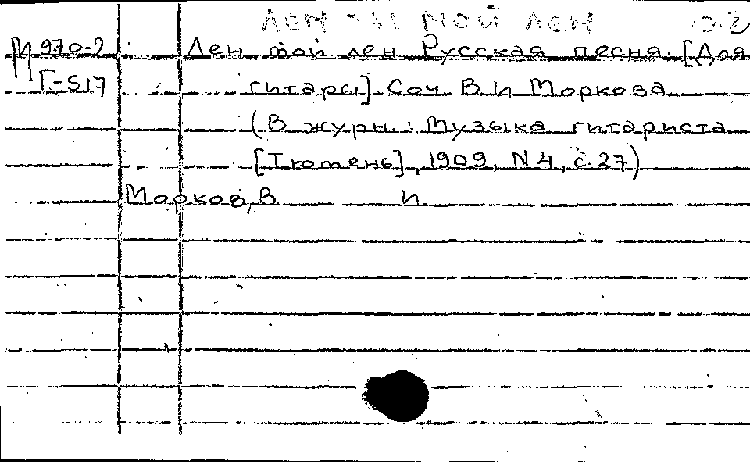 ЛЕН ТЫ МОЙ ЛЕН
М 970-2 Лен мой лен Русская песня. [Для
Г-517 гитары] Соч. В И Моркова
(В журн.: Музыка гитариста
[Тюмень], 1909, N 4, с. 27)
Морков, В И.